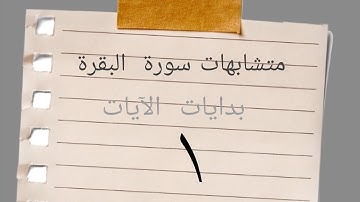 متشابهات سورة البقرة
بدايات الآيات
١